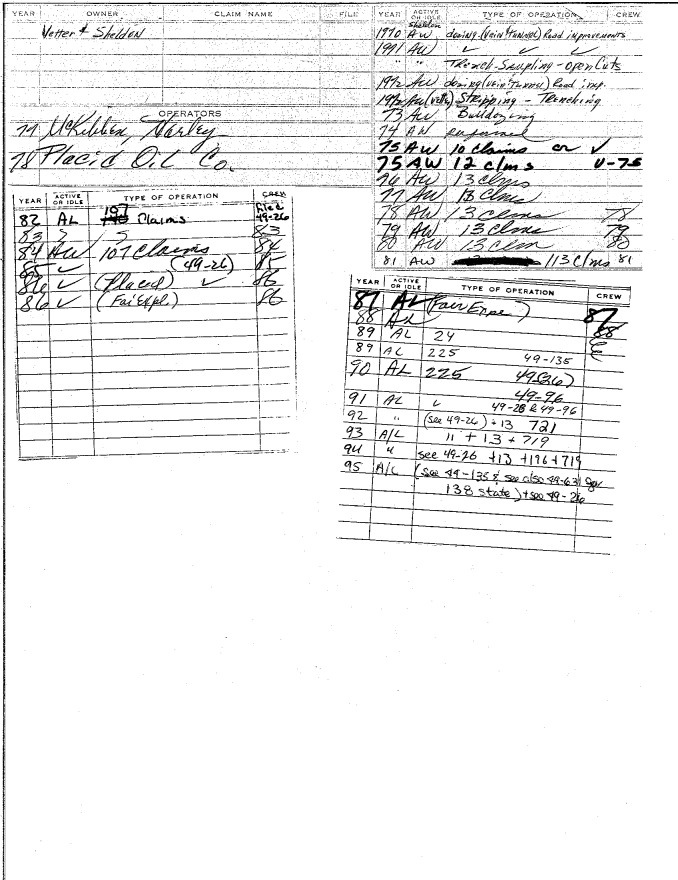 YEAR OWNER CLAIM NAME FILE
Vetter & Sheldon
OPERATORS
77 McKibben, Harley
78 Placid Oil Co.
YEAR ACTIVE OR IDLE TYPE OF OPERATION CREW
Sheldon
1970 AW dozing (Vein & Tunnel) Road improvements
1971 AW ✓ ✓ ✓
" " Trench-Sampling-Open Cuts
1972 AW dozing (Vein & Tunnel) Road imp.
1972 AW (Vetter) Stripping - Trenching
73 AW Bulldozing
74 AW
75 AW 10 claims or ✓
75 AW 12 clms U-75
76 AW 13 clms
77 AW 13 clms
78 AW 13 clms 78
79 AW 13 clms 79
80 AW 13 clm 80
81 AW 113 Clms 81
YEAR ACTIVE OR IDLE TYPE OF OPERATION CREW
82 AL 107 Claims Filed 49-26
83 83
84 AW 107 Claims 84
85 ✓ (49-26) 85
86 ✓ (Placed) ✓ 86
86 ✓ (Fair Expl.) 86
YEAR ACTIVE OR IDLE TYPE OF OPERATION CREW
87 AL (Fair Expe) 87
88 AL 88
89 AL 24
89 AL 225 49-135
90 AL 225 49(26)
49-96
91 AL ✓ 49-28 & 49-96
92 " (see 49-26) + 13 721
93 A/L 11 + 13 + 719
94 " see 49-26 + 13 + 196 + 719
95 A/L (See 49-135 & see also 49-63
138 state) + see 49-26